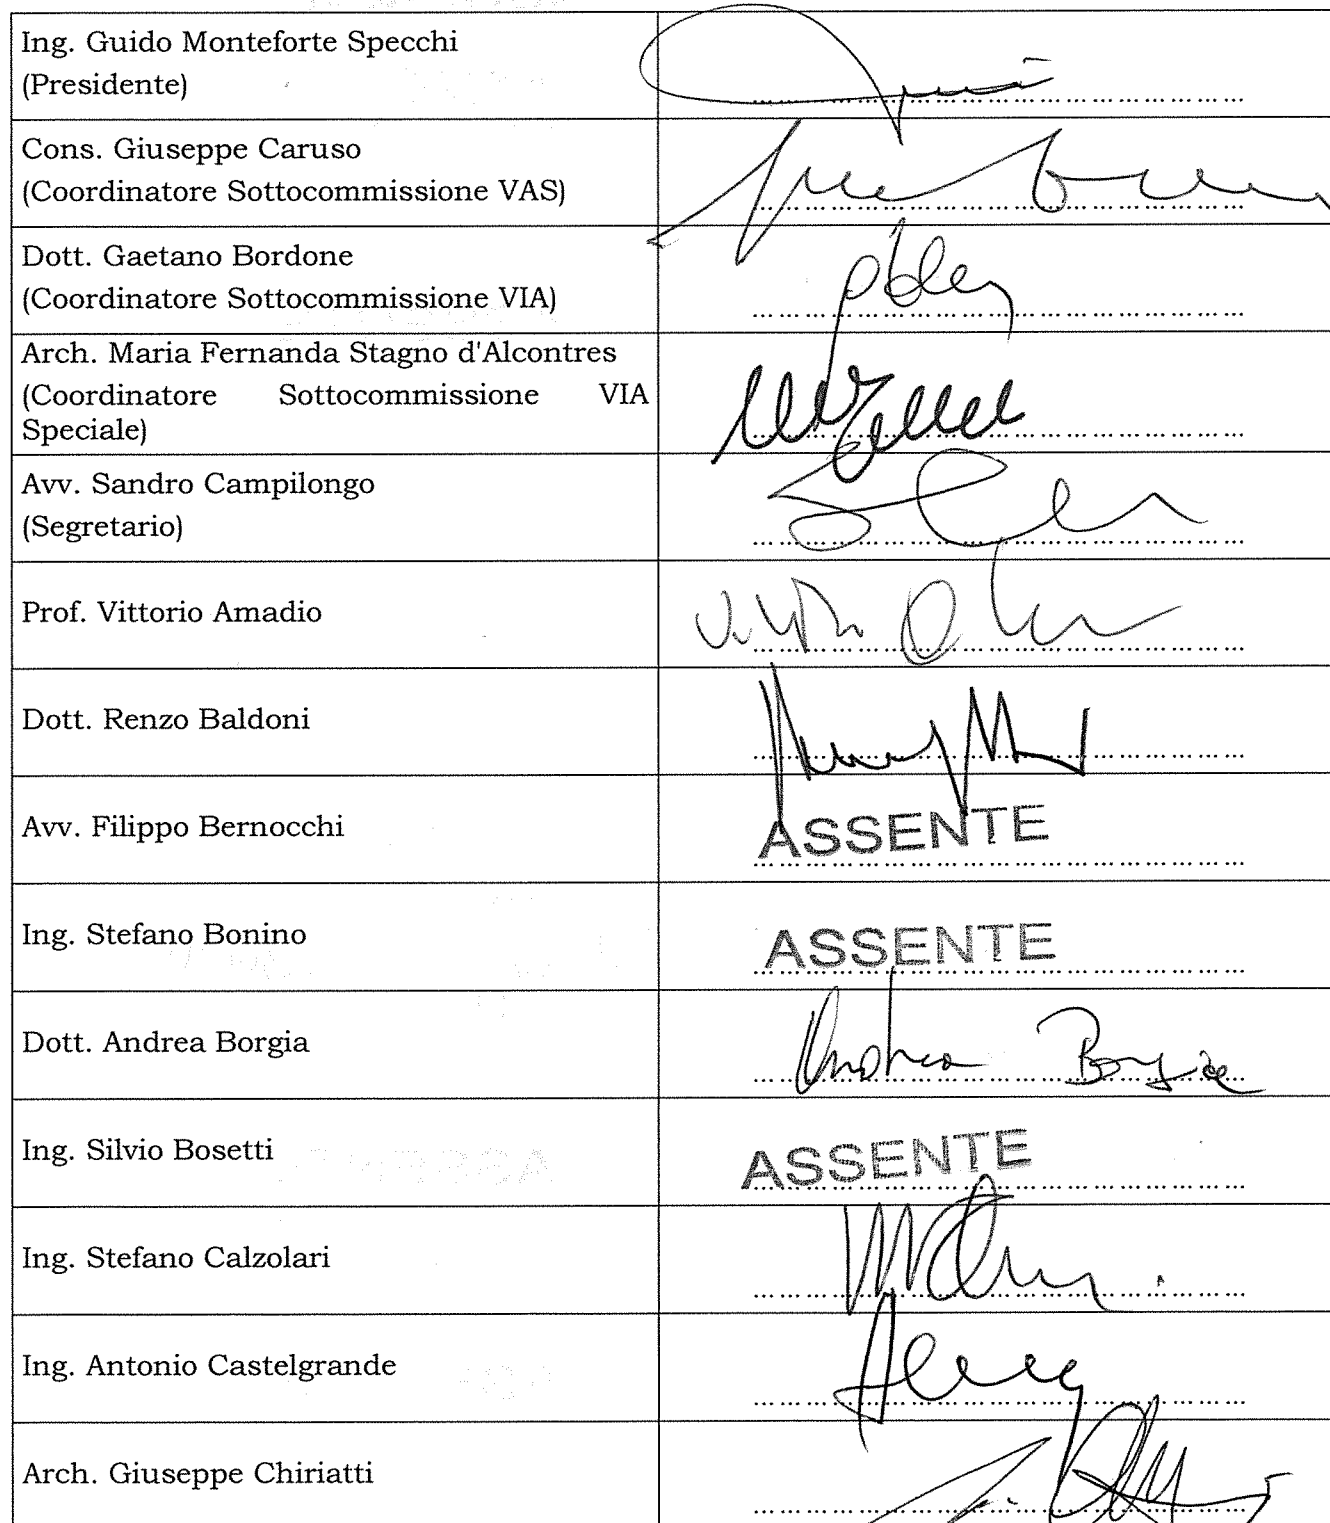 Ing. Guido Monteforte Specchi
(Presidente)
Cons. Giuseppe Caruso
(Coordinatore Sottocommissione VAS)
Dott. Gaetano Bordone
(Coordinatore Sottocommissione VIA)
Arch. Maria Fernanda Stagno d'Alcontres
(Coordinatore Sottocommissione VIA
Speciale)
Avv. Sandro Campilongo
(Segretario)
Prof. Vittorio Amadio
Dott. Renzo Baldoni
Avv. Filippo Bernocchi
ASSENTE
Ing. Stefano Bonino
ASSENTE
Dott. Andrea Borgia
Andrea Borgia
Ing. Silvio Bosetti
ASSENTE
Ing. Stefano Calzolari
Ing. Antonio Castelgrande
Arch. Giuseppe Chiriatti